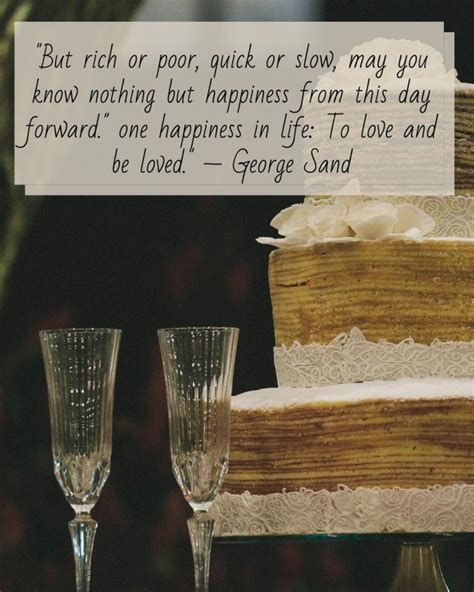 "But rich or poor, quick or slow, may you
know nothing but happiness from this day
forward." one happiness in life: To love and
be loved." – George Sand